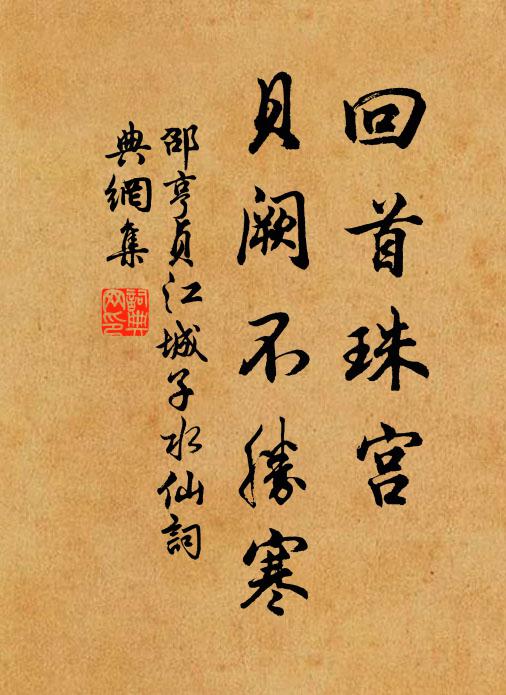 回首珠宫
貝阙不勝寒
邵亨貞江城子水仙詞
典網集
詞典
网印